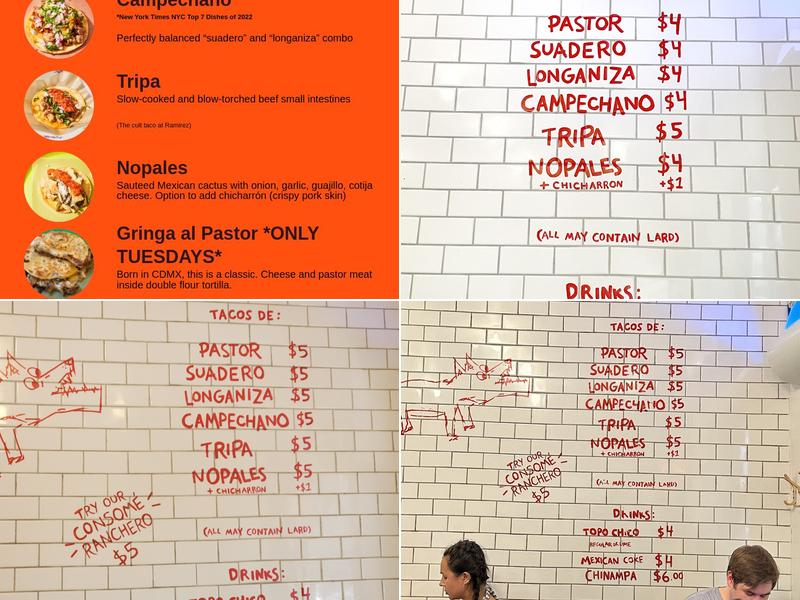 Campechano
*New York Times NYC Top 7 Dishes of 2022
Perfectly balanced “suadero” and “longaniza” combo
Tripa
Slow-cooked and blow-torched beef small intestines
(The cult taco at Ramirez)
Nopales
Sauteed Mexican cactus with onion, garlic, guajillo, cotija
cheese. Option to add chicharrón (crispy pork skin)
Gringa al Pastor *ONLY
TUESDAYS*
Born in CDMX, this is a classic. Cheese and pastor meat
inside double flour tortilla.
PASTOR $4
SUADERO $4
LONGANIZA $4
CAMPECHANO $4
TRIPA $5
NOPALES $4
+ CHICHARRON +$1
(ALL MAY CONTAIN LARD)
DRINKS:
TACOS DE:
PASTOR $5
SUADERO $5
LONGANIZA $5
CAMPECHANO $5
TRIPA $5
NOPALES $5
+ CHICHARRON +$1
TRY OUR
CONSOME
RANCHERO
$5
(ALL MAY CONTAIN LARD)
DRINKS:
TOPO CHICO $4
TACOS DE:
PASTOR $5
SUADERO $5
LONGANIZA $5
CAMPECHANO $5
TRIPA $5
NOPALES $5
+ CHICHARRON +$1
TRY OUR
CONSOME
RANCHERO
$5
(ALL MAY CONTAIN LARD)
DRINKS:
TOPO CHICO $4
REGULAR OR LIME
MEXICAN COKE $4
CHINAMPA $6.00